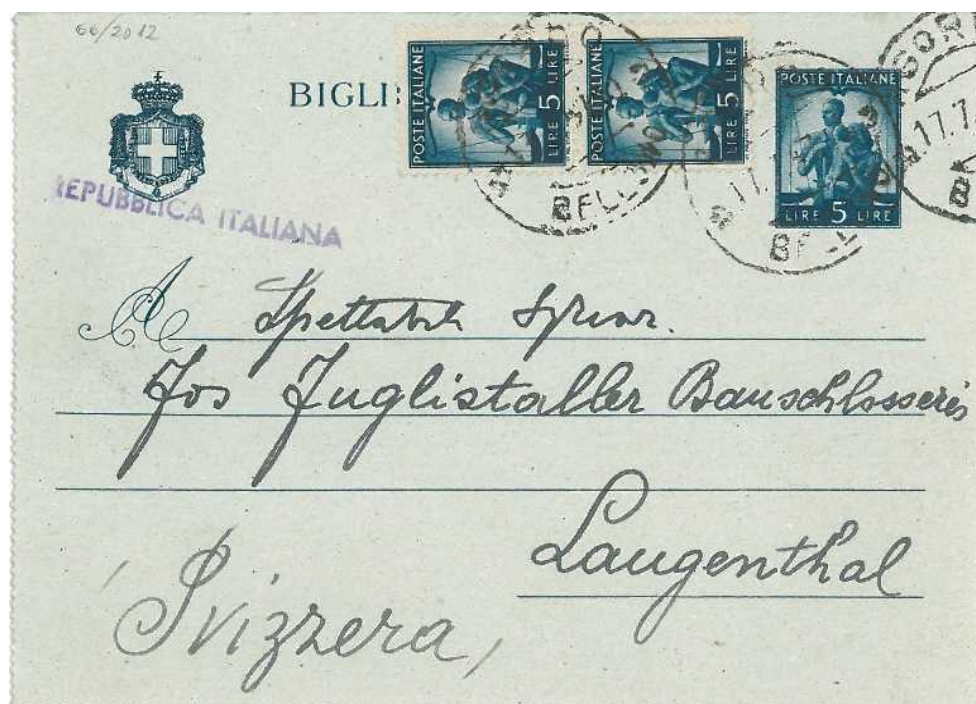 66/2012
BIGLI
POSTE ITALIANE
LIRE 5 LIRE
POSTE ITALIANE
LIRE 5 LIRE
POSTE ITALIANE
LIRE 5 LIRE
BELLUNO
17.7
REPUBBLICA ITALIANA
A
Jos Juglistaller Bauschlosserei
Langenthal
Svizzera,